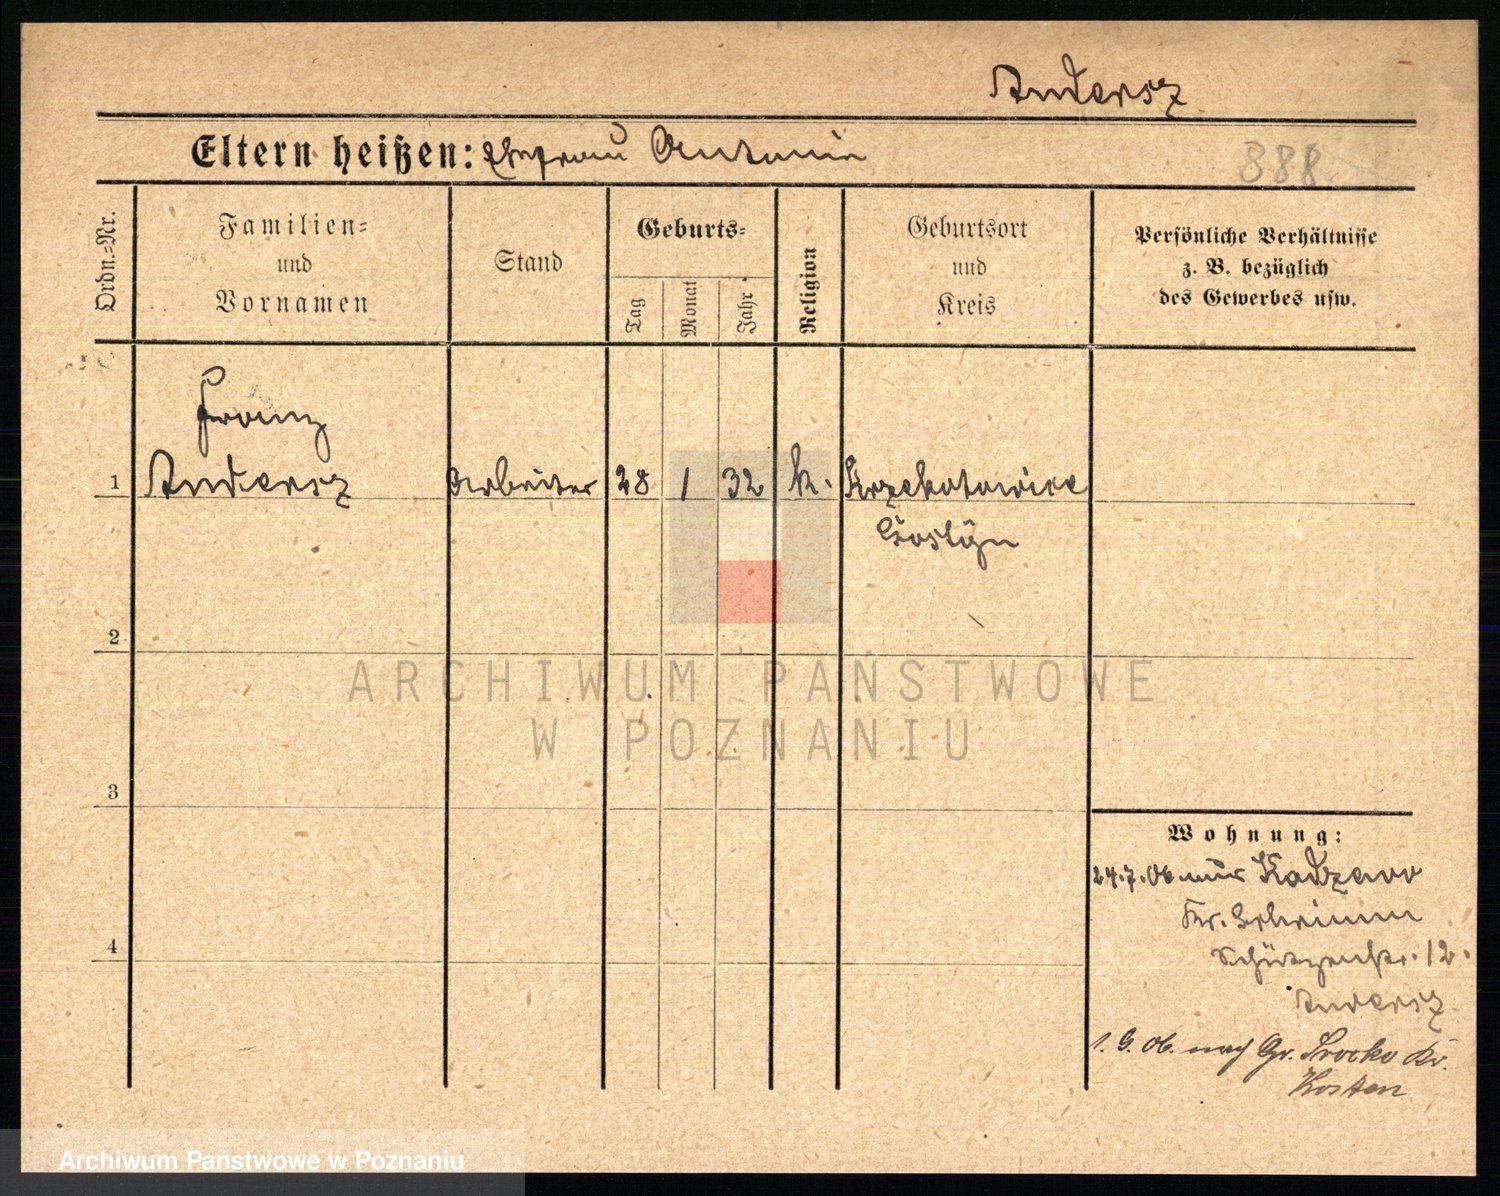 Andersz
Eltern heißen: Ehefrau Antonie
888
Ordn.-Nr.
Familien-
und
Vornamen
Stand
Geburts-
Tag
Monat
Jahr
Religion
Geburtsort
und
Kreis
Persönliche Verhältnisse
z. B. bezüglich
des Gewerbes usw.
Franz
1 Andersz Arbeiter 28 1 32 k. Krzekotowice
Gostyn
2
3
4
Wohnung:
24.7.06 aus Kadzewo
Kr. Schrimm
Schützenstr. 12.
Andersz
1.9.06. nach Gr. Srocko Kr.
Kosten
ARCHIWUM PAŃSTWOWE
W POZNANIU
Archiwum Państwowe w Poznaniu